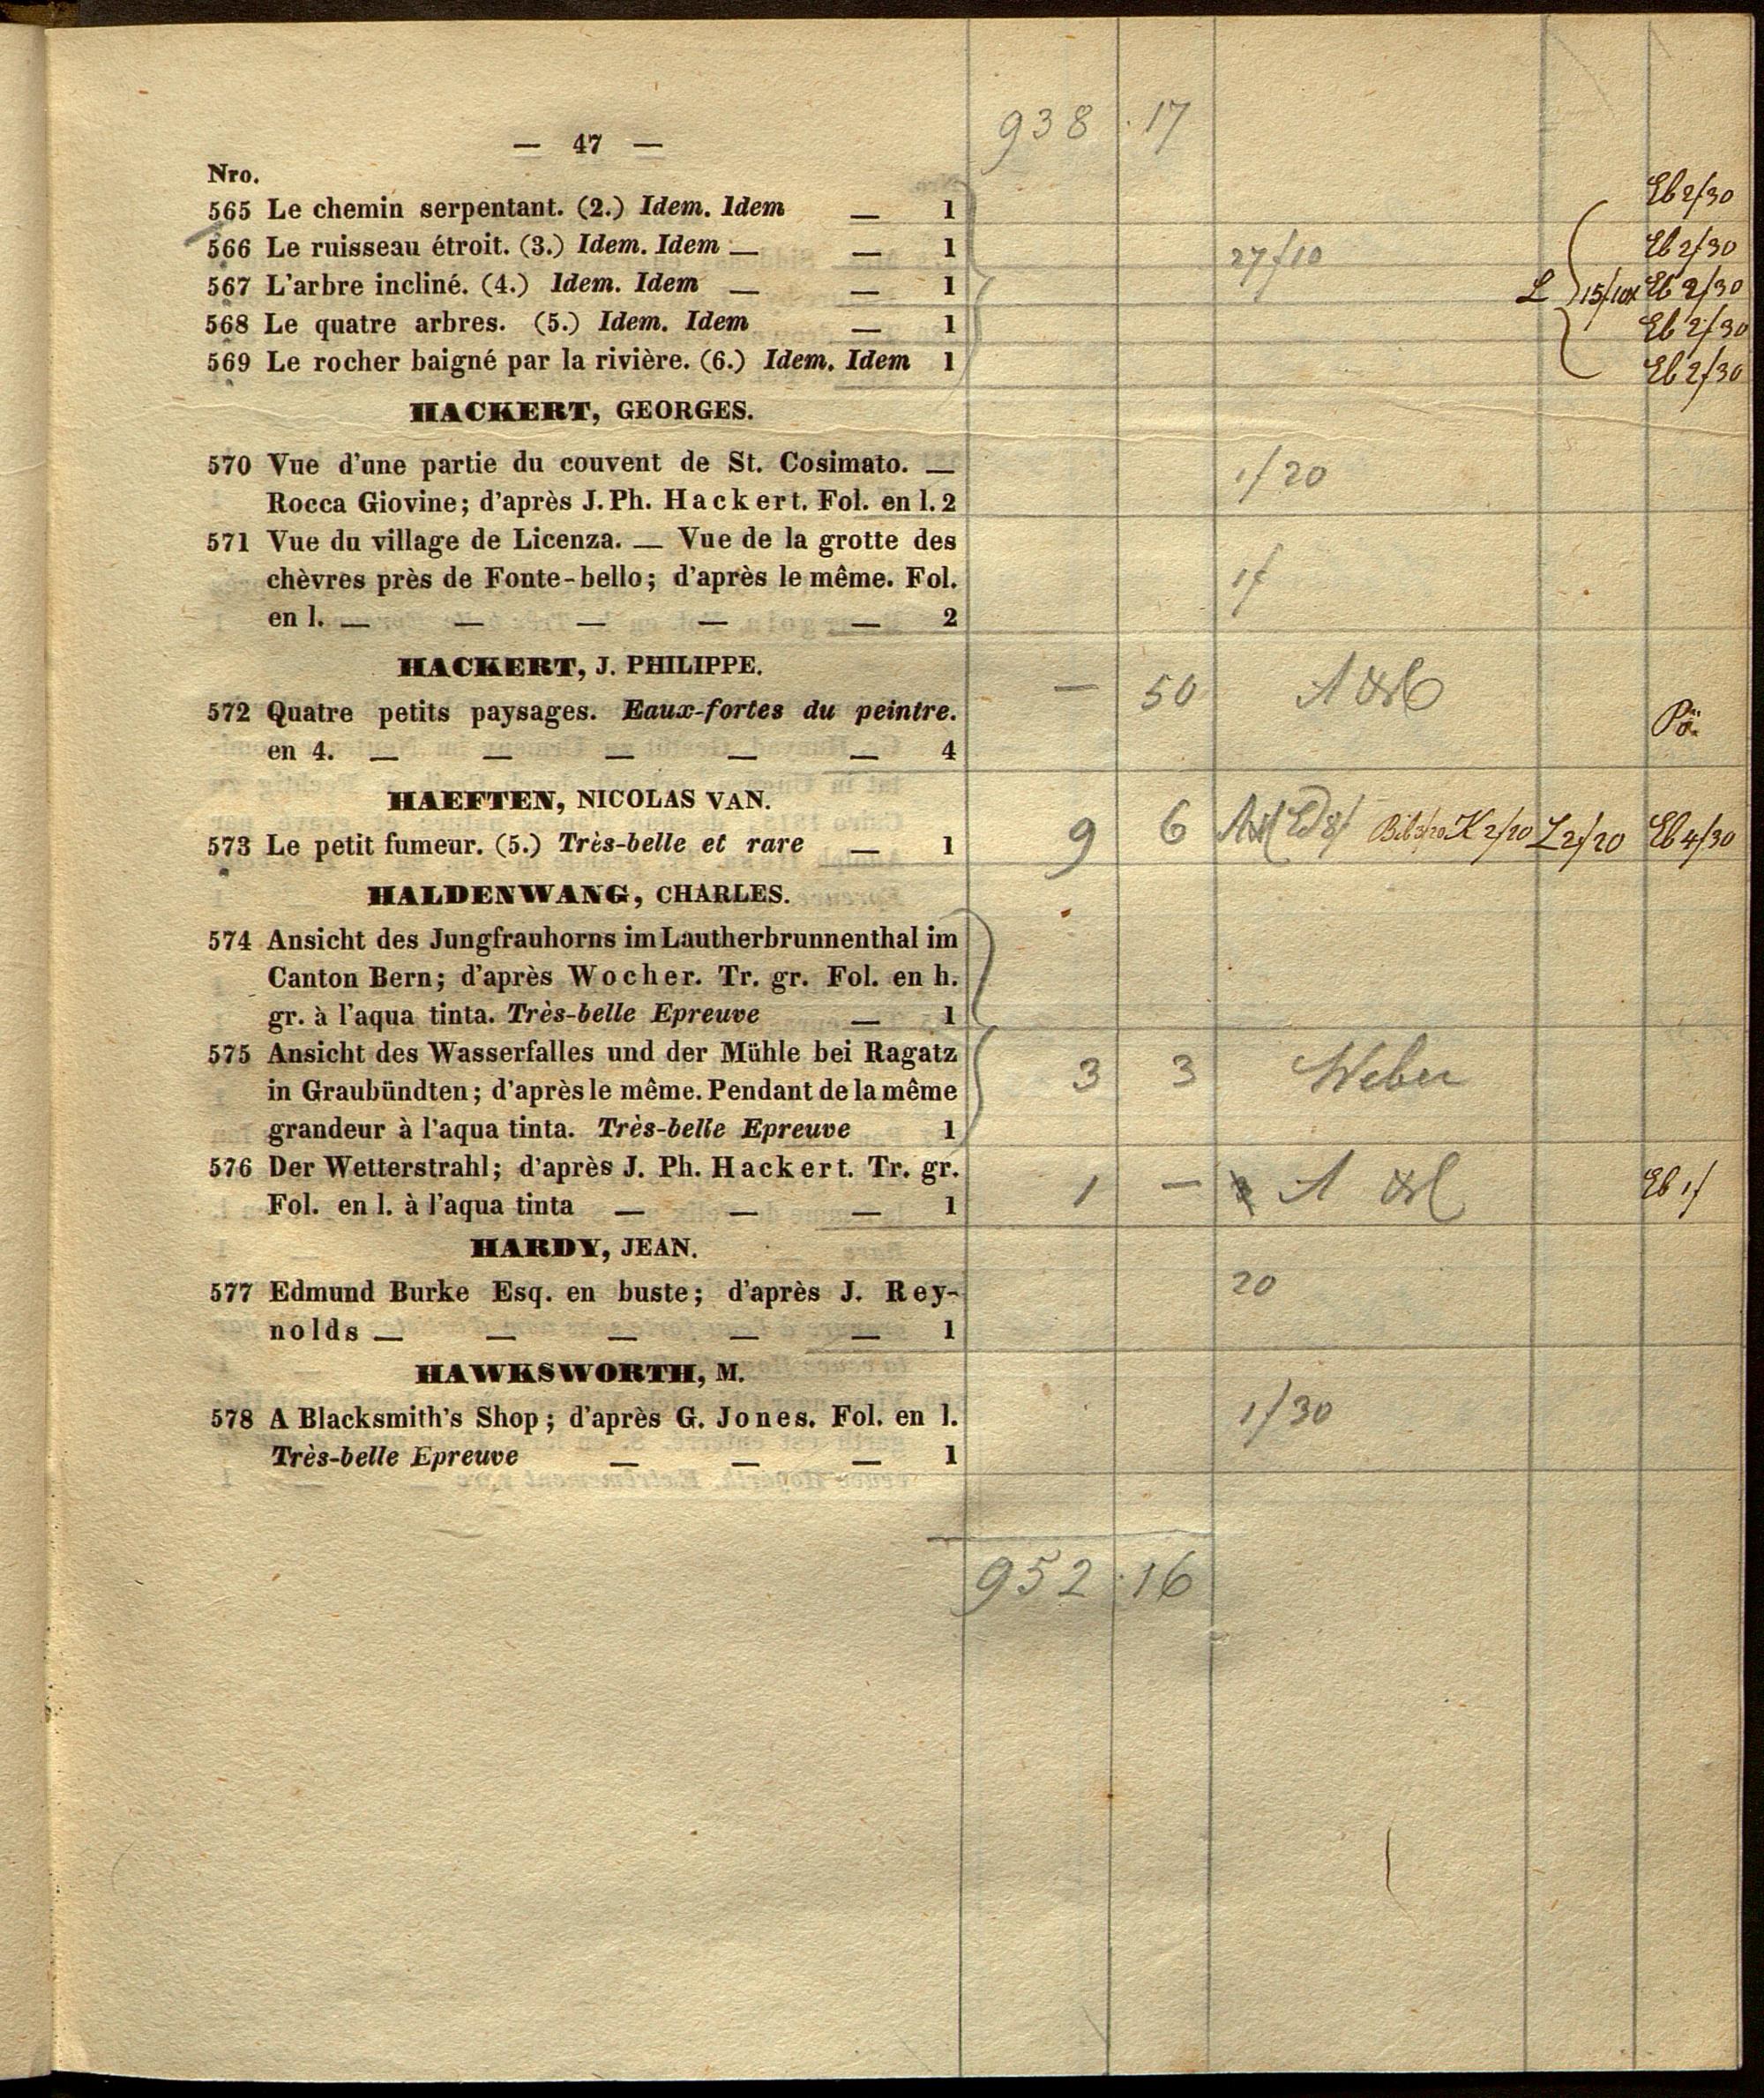 938 . 17
— 47 —
Nro.
565 Le chemin serpentant. (2.) Idem. Idem — 1 Eb 2f30
566 Le ruisseau étroit. (3.) Idem. Idem — — 1 27f10 Eb 2f30
567 L'arbre incliné. (4.) Idem. Idem — — 1 Eb 2f30
568 Le quatre arbres. (5.) Idem. Idem — 1 Eb 2f30
569 Le rocher baigné par la rivière. (6.) Idem. Idem 1 Eb 2f30
HACKERT, GEORGES.
570 Vue d'une partie du couvent de St. Cosimato. — 1f20
Rocca Giovine; d'après J. Ph. Hackert. Fol. en l. 2
571 Vue du village de Licenza. — Vue de la grotte des
chèvres près de Fonte-bello; d'après le même. Fol. 1f
en l. — — — — — 2
HACKERT, J. PHILIPPE. — 50
572 Quatre petits paysages. Eaux-fortes du peintre. Pö.
en 4. — — — — — 4
HAEFTEN, NICOLAS VAN.
573 Le petit fumeur. (5.) Très-belle et rare — 1 9 6 K 2f20 L 2f20 Eb 4f30
HALDENWANG, CHARLES.
574 Ansicht des Jungfrauhorns im Lautherbrunnenthal im
Canton Bern; d'après Wocher. Tr. gr. Fol. en h.
gr. à l'aqua tinta. Très-belle Epreuve — 1
575 Ansicht des Wasserfalles und der Mühle bei Ragatz 3 3 Weber
in Graubündten; d'après le même. Pendant de la même
grandeur à l'aqua tinta. Très-belle Epreuve 1
576 Der Wetterstrahl; d'après J. Ph. Hackert. Tr. gr. 1 — Eb 1f
Fol. en l. à l'aqua tinta — — — 1
HARDY, JEAN.
577 Edmund Burke Esq. en buste; d'après J. Rey- 20
nolds — — — — — 1
HAWKSWORTH, M.
578 A Blacksmith's Shop; d'après G. Jones. Fol. en l. 1f30
Très-belle Epreuve — — — 1
952 . 16